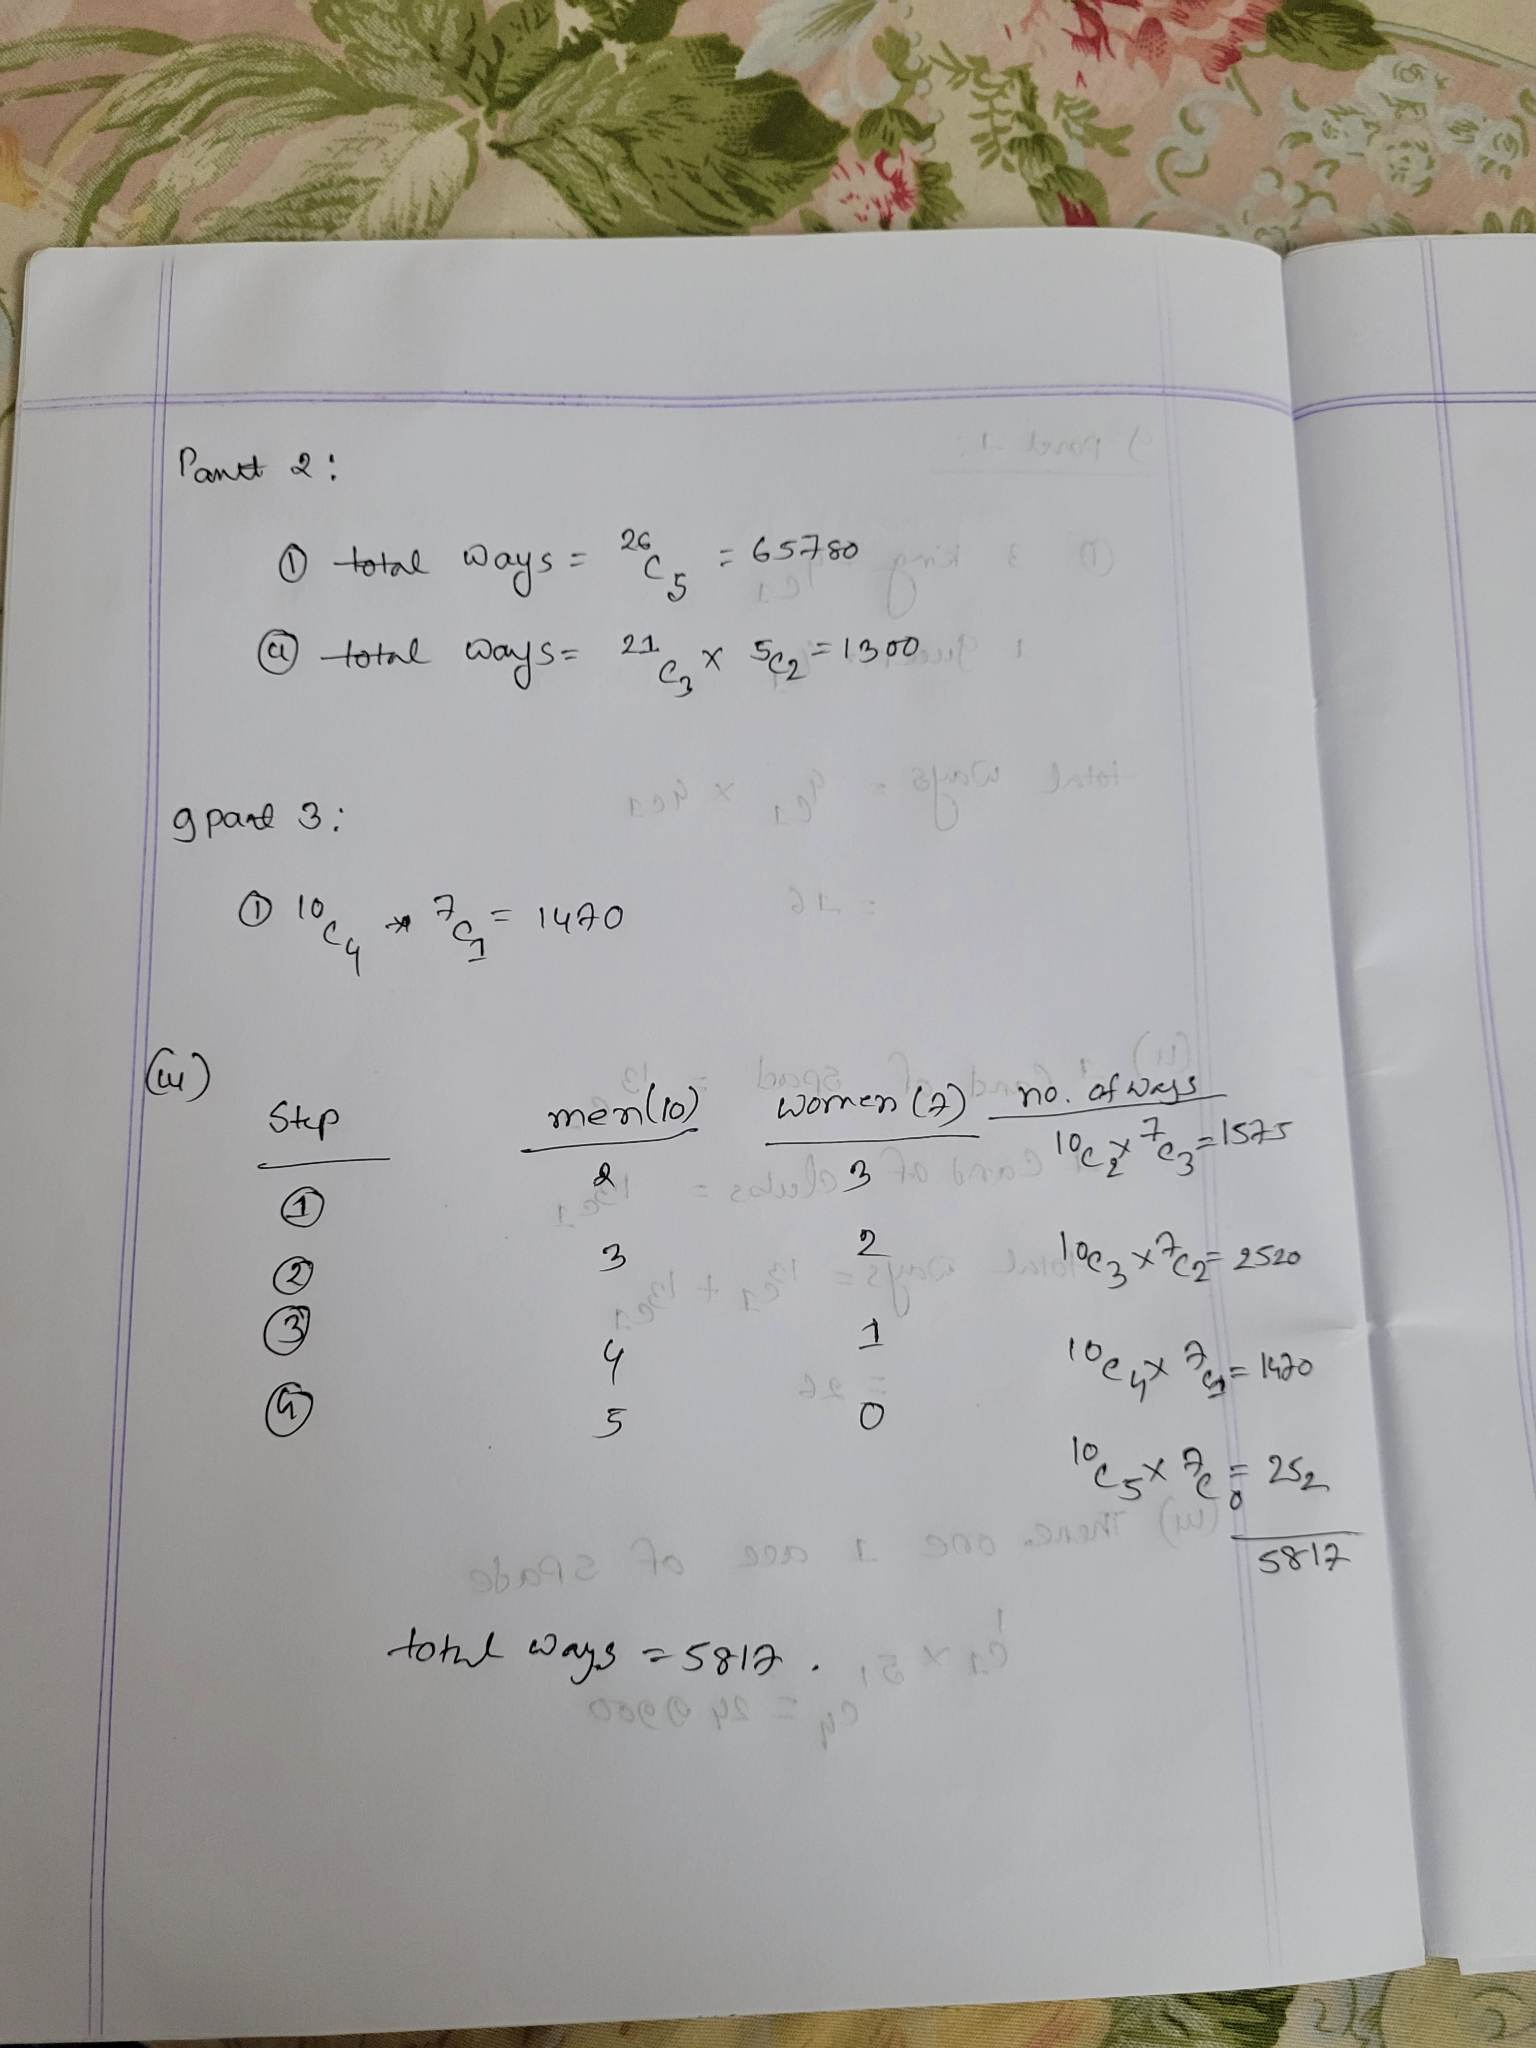 Part 2:
① total ways = 26C5 = 65780
② total ways = 21C3 × 5C2 = 1300
9 part 3:
① 10C4 * 7C1 = 1470
(ii)
Step men(10) women (7) no. of ways
① 2 3 10C2 × 7C3 = 1575
② 3 2 10C3 × 7C2 = 2520
③ 4 1 10C4 × 7C1 = 1470
④ 5 0 10C5 × 7C0 = 252
5817
total ways = 5817.